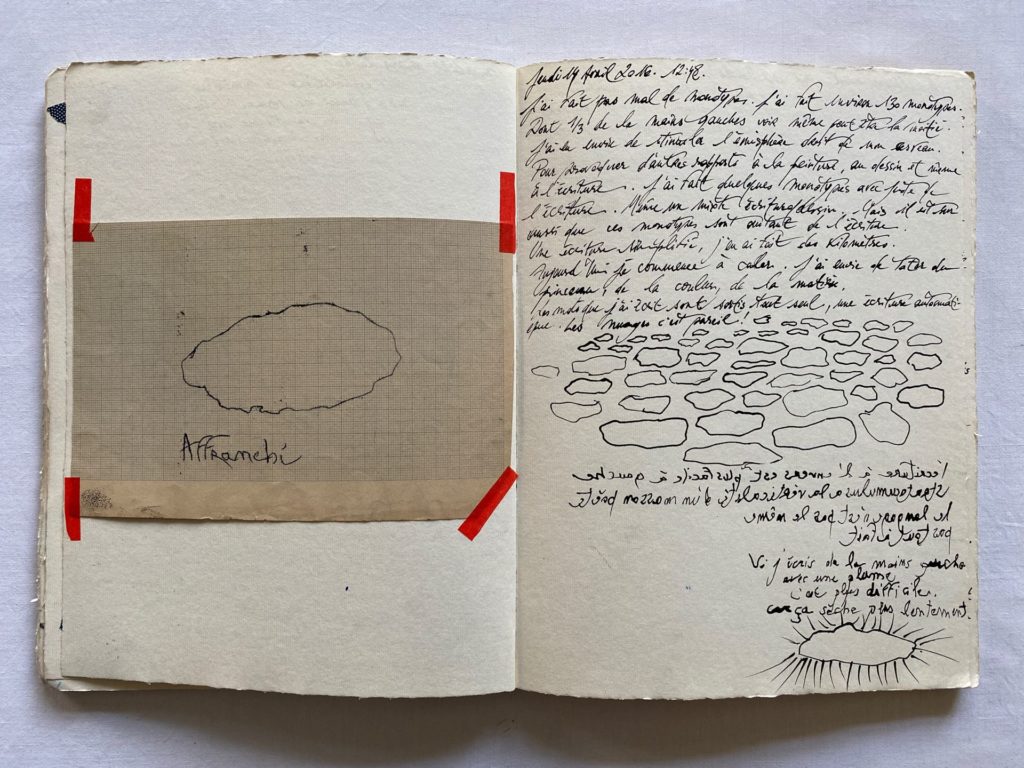 Affranchi
Jeudi 14 Avril 2016. 12:48.
J'ai fait pas mal de monotypes. J'ai fait environ 130 monotypes.
Dont 1/3 de la mains gauches voir même peut être la moitié.
J'ai eu envie de stimuler l'émisphère droit de mon cerveau.
Pour provoquer d'autres rapports à la peinture, au dessin et même
à l'écriture. J'ai fait quelques monotypes avec juste de
l'écriture. Même un mixte écriture/dessin. Mais il est sur
aussi que ces monotypes sont autant de l'écriture.
Une écriture simplifié, j'en ai fait des kilomètres.
Aujourd'hui je commence à caler. J'ai envie de tater du
pinceau, de la couleur, de la matière.
Les mots que j'ai écrit sont sortis tout seul, une écriture automati-
que. Les nuages c'est pareil!
l'écriture à l'envers est plus facile à gauche
stratocumulus la véritié d'un
le même n'est pas le même
pas tout à fait
Vi j'écris de la mains gauche
avec une plume
c'est plus difficile.
car ça sèche plus lentement.